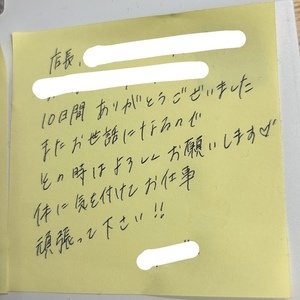 店長、
10日間 ありがとうございました
またお世話になるので
その時はよろしくお願いします♡
体に気を付けてお仕事
頑張って下さい!!